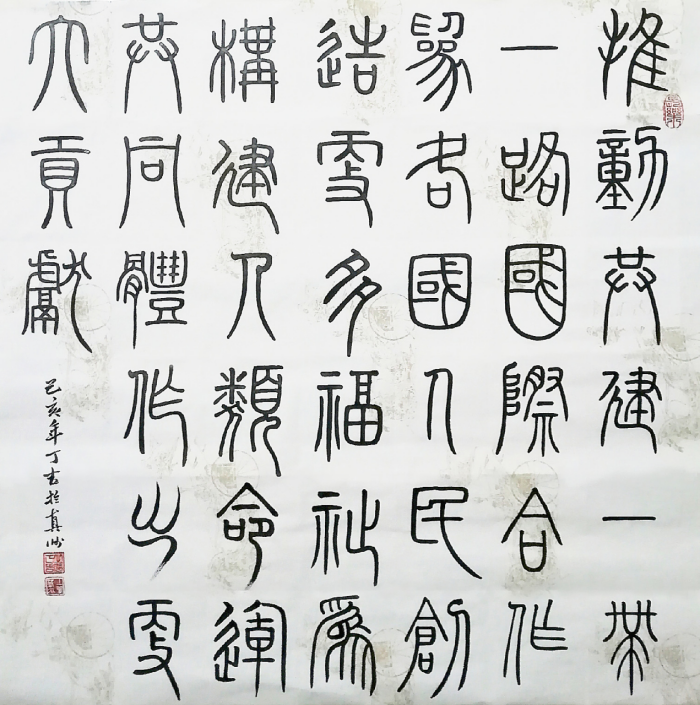 推動共建一帶
一路國際合作
爲各國人民創
造更多福祉爲
構建人類命運
共同體作出更
大貢獻
己亥年丁書於真州